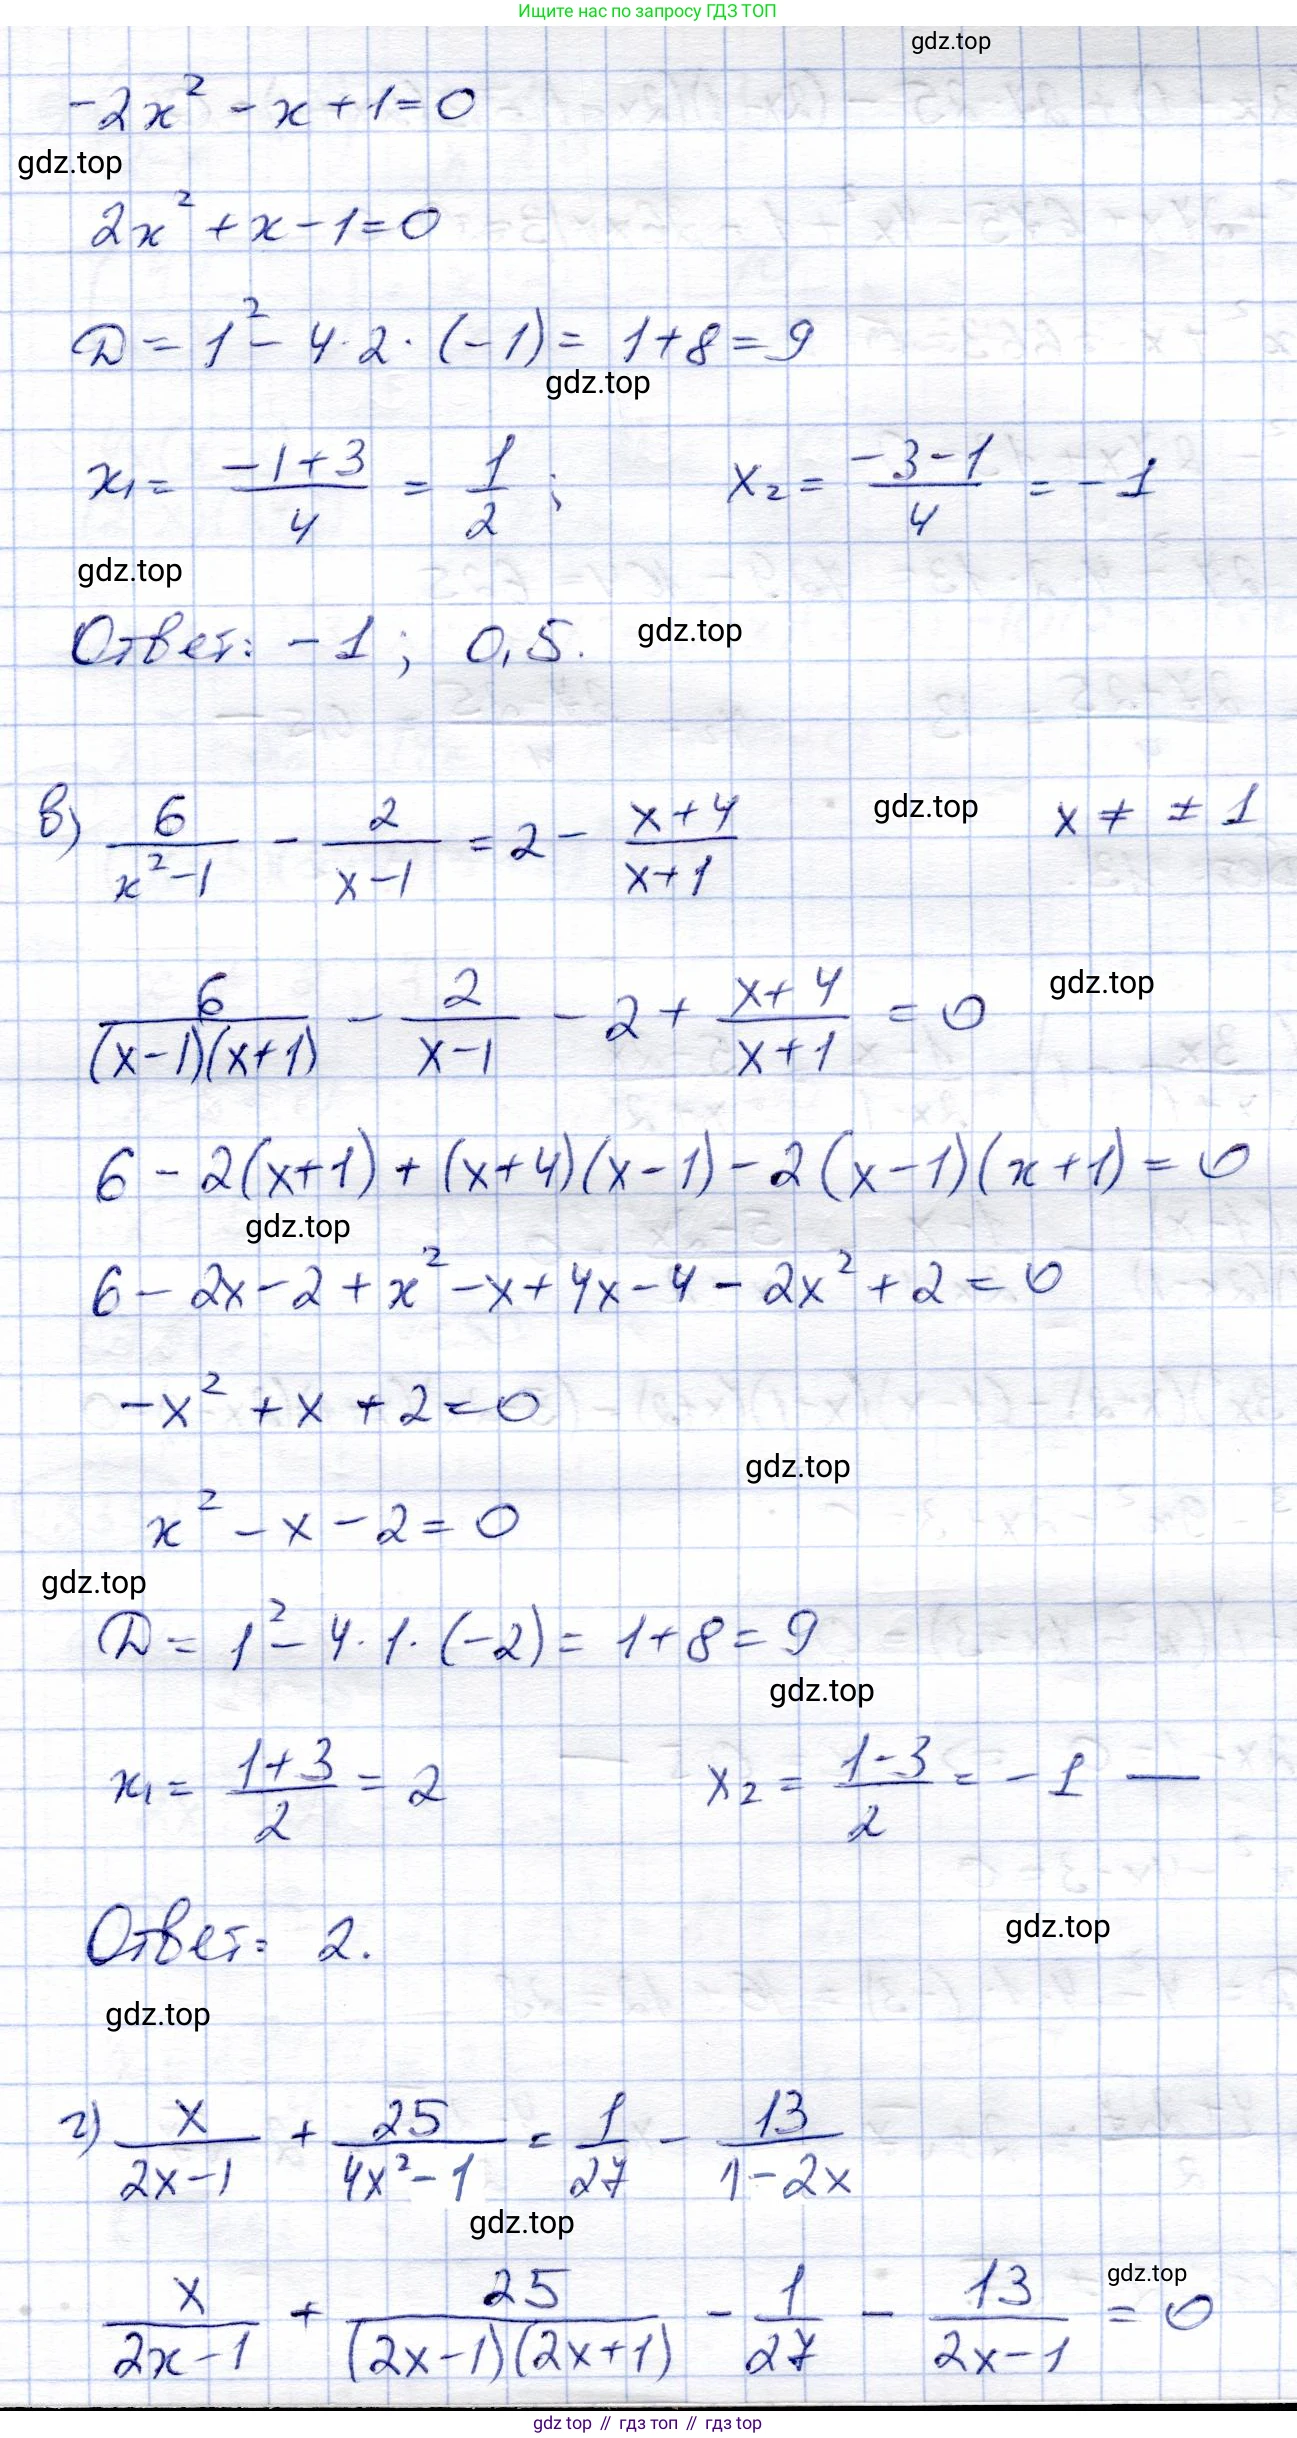 Ищите нас по запросу ГДЗ ТОП
gdz.top
-2x² - x + 1 = 0
gdz.top
2x² + x - 1 = 0
D = 1² - 4 · 2 · (-1) = 1 + 8 = 9
gdz.top
x₁ = (-1+3)/4 = 1/2 ; x₂ = (-3-1)/4 = -1
gdz.top
Ответ: -1 ; 0,5.
gdz.top
в) 6/(x²-1) - 2/(x-1) = 2 - (x+4)/(x+1) x ≠ ±1
gdz.top
6/((x-1)(x+1)) - 2/(x-1) - 2 + (x+4)/(x+1) = 0
gdz.top
6 - 2(x+1) + (x+4)(x-1) - 2(x-1)(x+1) = 0
gdz.top
6 - 2x - 2 + x² - x + 4x - 4 - 2x² + 2 = 0
-x² + x + 2 = 0
gdz.top
x² - x - 2 = 0
gdz.top
D = 1² - 4 · 1 · (-2) = 1 + 8 = 9
gdz.top
x₁ = (1+3)/2 = 2 x₂ = (1-3)/2 = -1 —
Ответ: 2.
gdz.top
gdz.top
г) x/(2x-1) + 25/(4x²-1) = 1/27 - 13/(1-2x)
gdz.top
x/(2x-1) + 25/((2x-1)(2x+1)) - 1/27 - 13/(2x-1) = 0
gdz.top
gdz top // гдз топ // гдз top